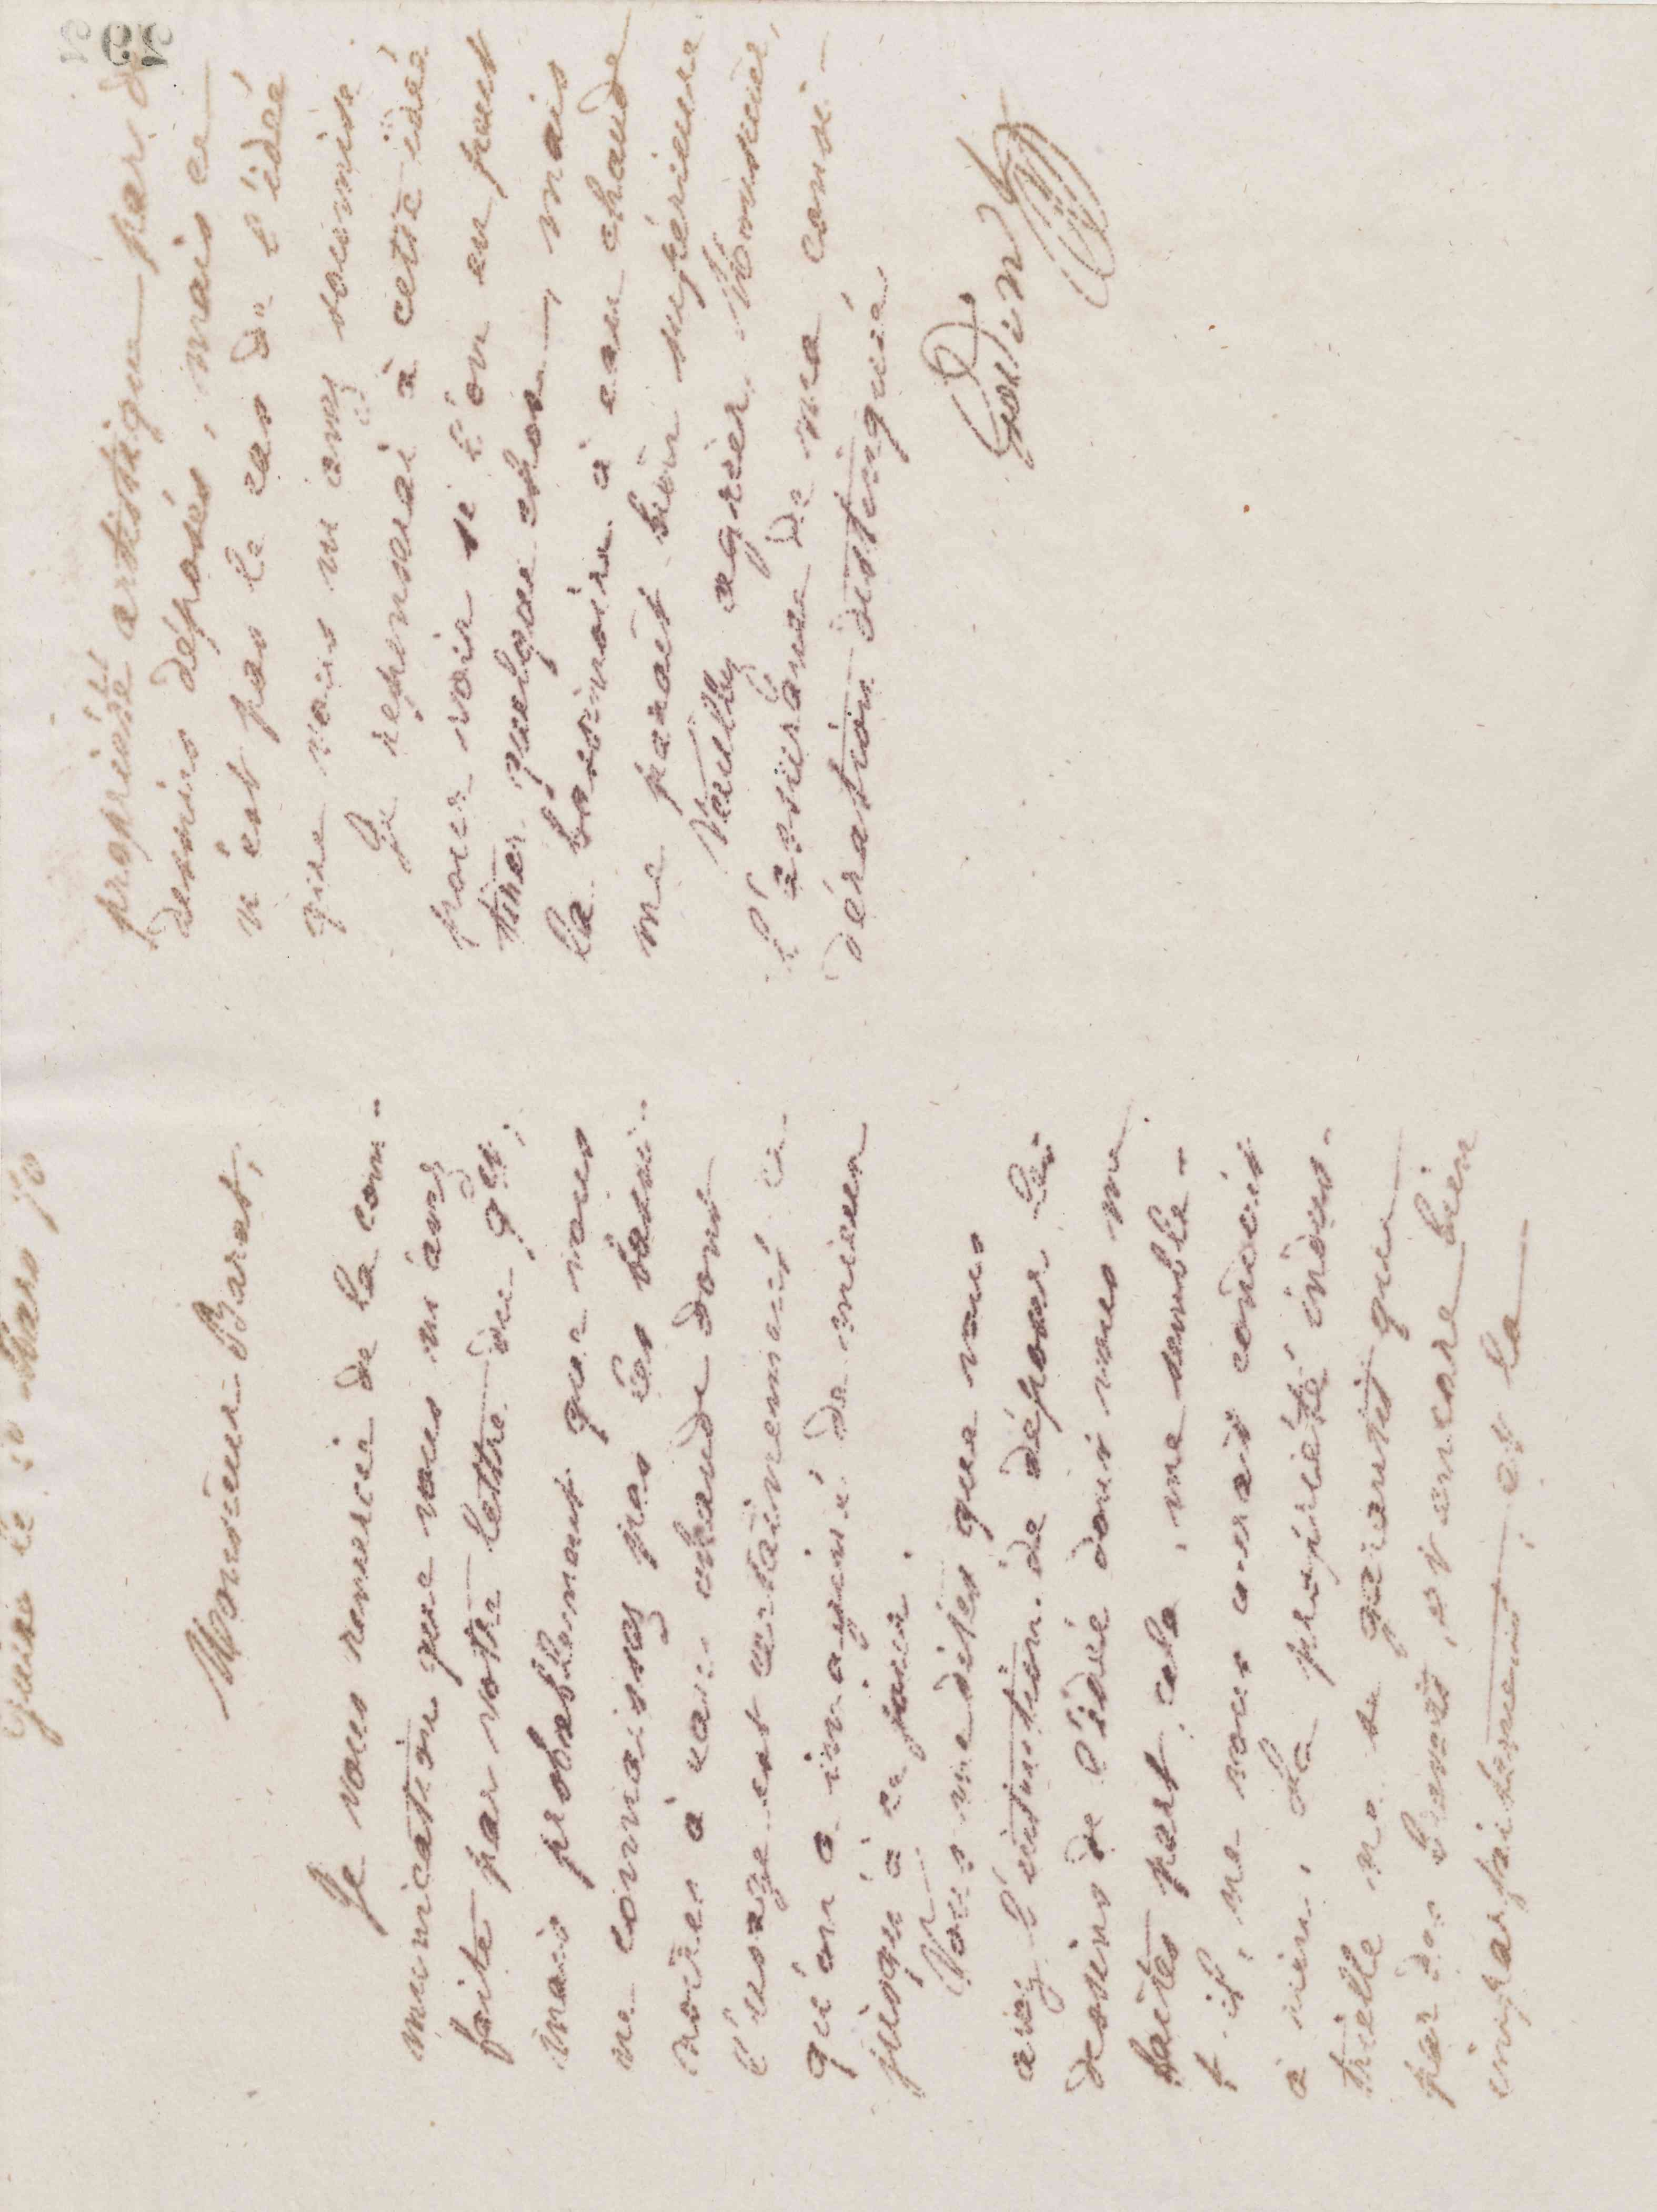 Guise le 10 Mars 70
Monsieur Barat,
Je vous remercie de la com-
munication que vous m'avez
faite par votre lettre du 9 ct;
mais probablement que vous
ne connaissez pas les bassi-
noires à eau chaude dont
l'usage est certainement ce
qu'on a imaginé de mieux
jusqu'à ce jour.
Vous me dites que vous
avez l'intention de déposer les
dessins de l'idée dont vous me
faites part, cela, me semble-
t-il, ne vous aurait conduit
à rien. La propriété indus-
trielle ne se garantit que
par des brevets, et encore bien
imparfaitement, et la
propriété artistique par d
dessins déposés, mais ce
n'est pas le cas de l'idée
que vous m'avez soumise
Je repenserai à cette idée
pour voir si l'on en peut
tirer quelque chose, mais
la bassinoire à eau chaude
me parait bien supérieure
Veuillez agréer, Monsieur,
l'assurance de ma consi-
dération distinguée,
Godin